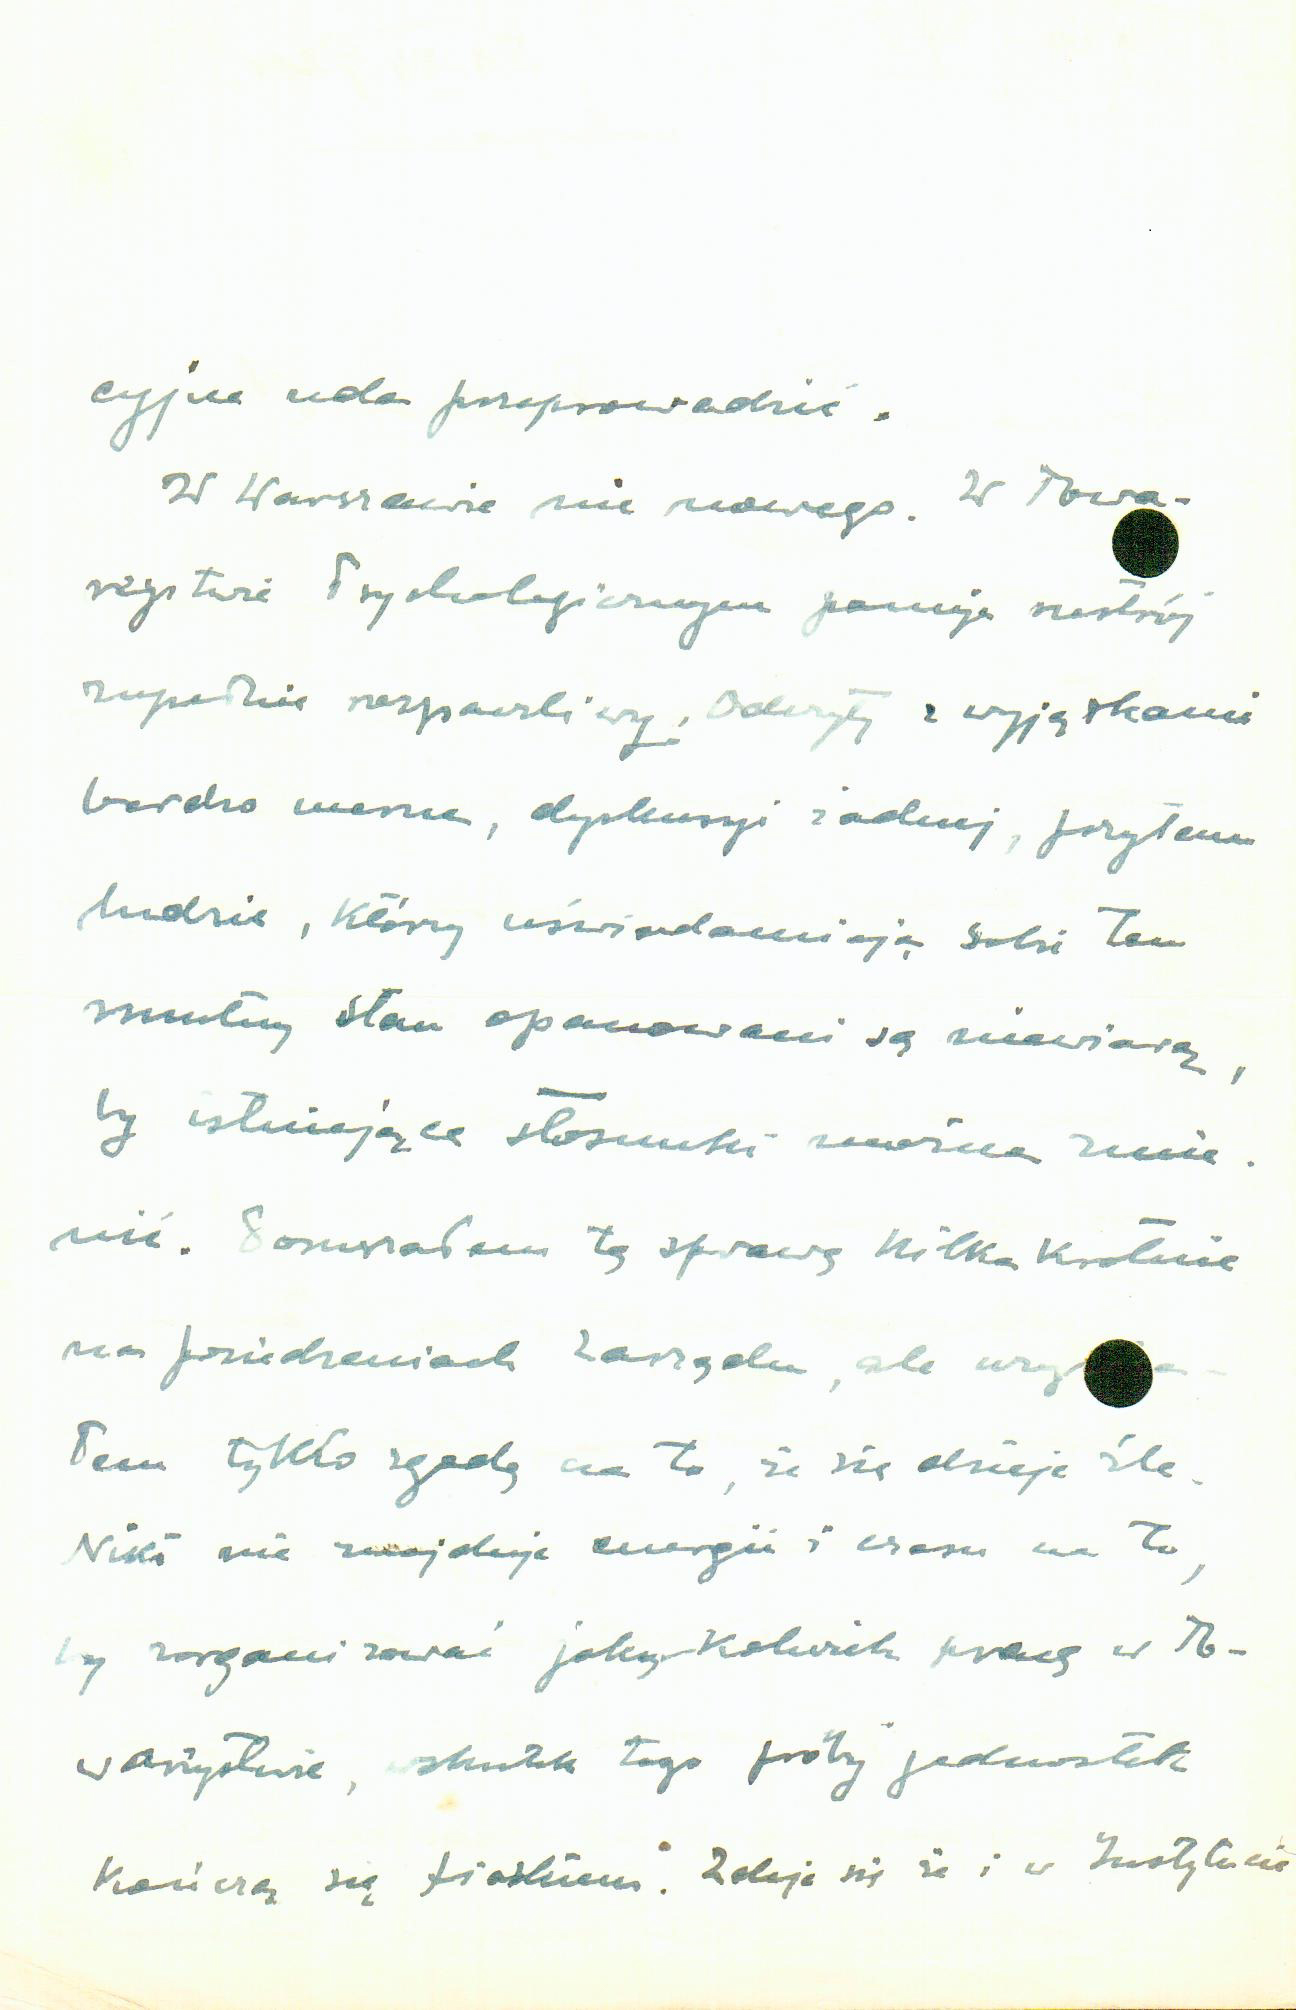 cyjne uda przeprowadzić.
W Warszawie nic nowego. W Towa-
rzystwie Psychologicznym panuje nastrój
zupełnie rozpaczliwy. Odczyty z wyjątkami
bardzo marne, dyskusyi żadnej, przytem
ludzie, którzy uświadamiają sobie ten
smutny stan opanowani są niewiarą,
by istniejące stosunki można zmie-
nić. Poruszałem tę sprawę kilkakrotnie
na posiedzeniach Zarządu, ale
łem tylko zgodę na to, że się dzieje źle.
Nikt nie znajduje energii i czasu na to,
by zorganizować jakąkolwiek pracę w To-
warzystwie, wskutek tego próby jednostek
kończą się fiaskiem. Zdaje się że i w Instytucie